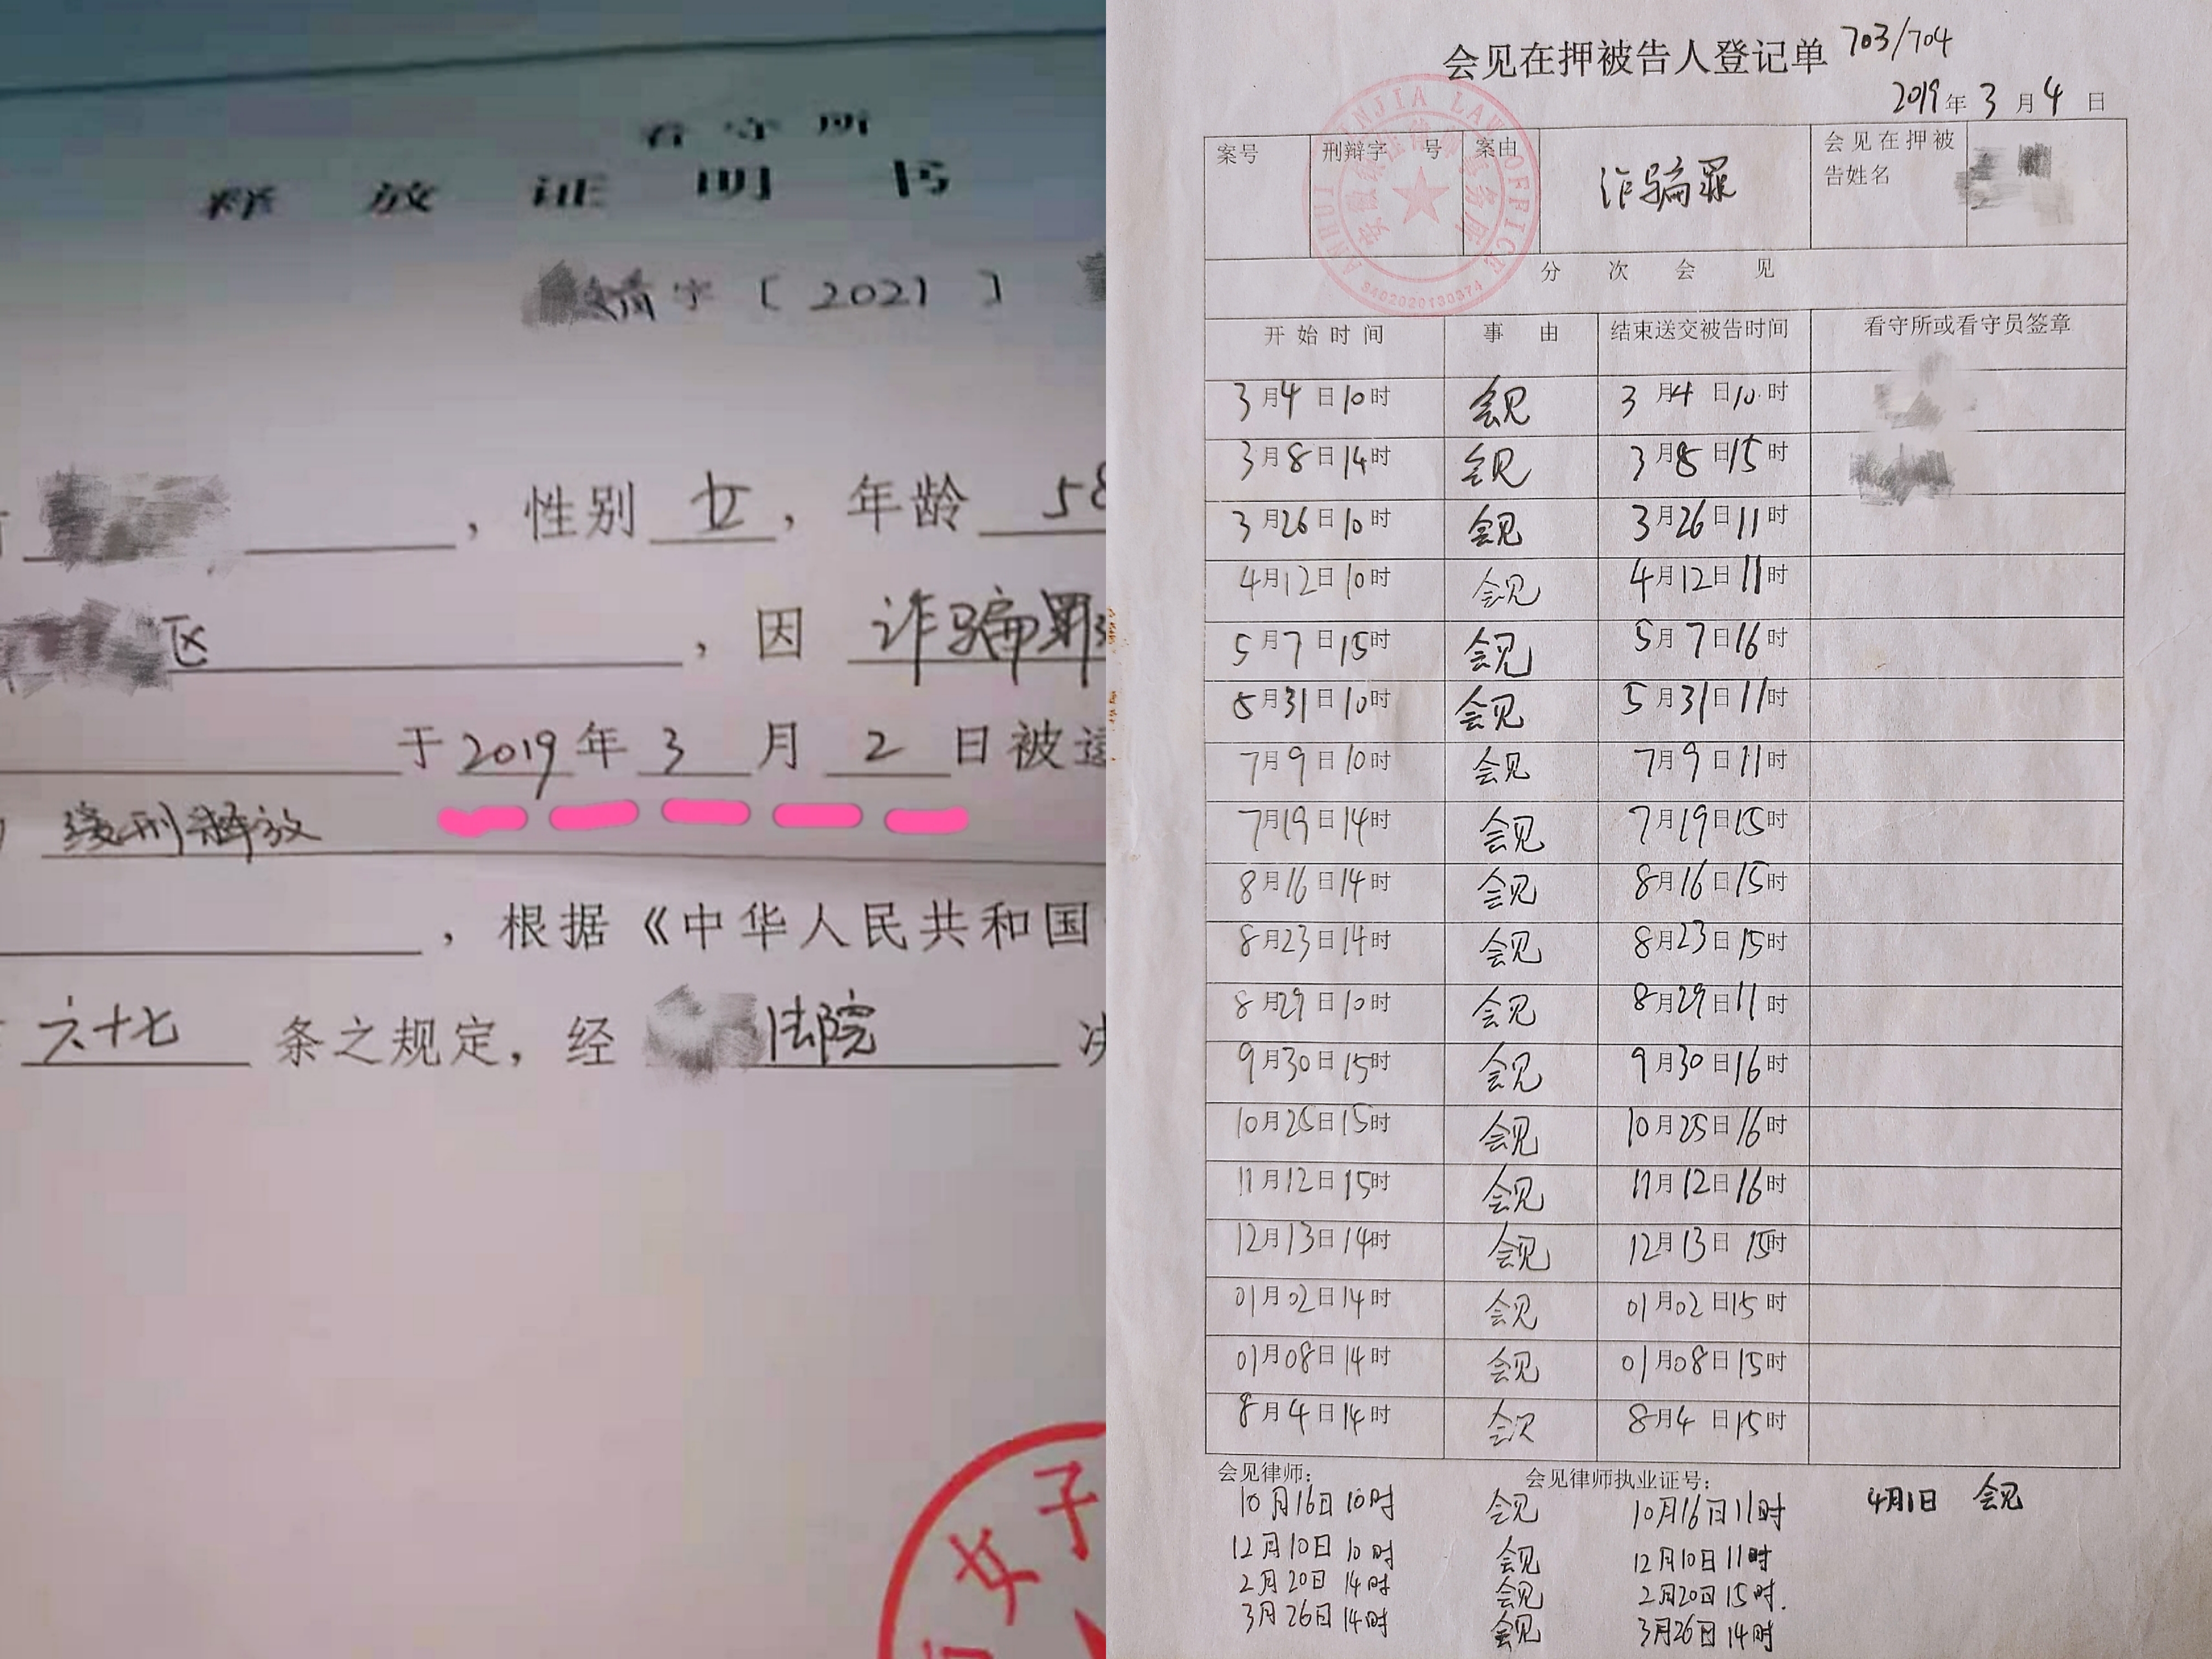 看守所
释放证明书
字〔2021〕
，性别 女，年龄 58
区，因 诈骗罪
于2019年3月2日被
缓刑释放
，根据《中华人民共和国
六十七 条之规定，经 法院 决
女子
会见在押被告人登记单 703/704
2019年3月4日
案号 刑辩字 号 案由 诈骗罪 会见在押被告姓名
ANHUI INJIA LAW OFFICE
律师事务所
3402020130374
分次会见
开始时间 事由 结束送交被告时间 看守所或看守员签章
3月4日10时 会见 3月4日10时
3月8日14时 会见 3月8日15时
3月26日10时 会见 3月26日11时
4月12日10时 会见 4月12日11时
5月7日15时 会见 5月7日16时
5月31日10时 会见 5月31日11时
7月9日10时 会见 7月9日11时
7月19日14时 会见 7月19日15时
8月16日14时 会见 8月16日15时
8月23日14时 会见 8月23日15时
8月29日10时 会见 8月29日11时
9月30日15时 会见 9月30日16时
10月25日15时 会见 10月25日16时
11月12日15时 会见 11月12日16时
12月13日14时 会见 12月13日15时
01月02日14时 会见 01月02日15时
01月08日14时 会见 01月08日15时
8月4日14时 会见 8月4日15时
会见律师： 会见律师执业证号：
10月16日10时 会见 10月16日11时 4月1日 会见
12月10日10时 会见 12月10日11时
2月20日14时 会见 2月20日15时.
3月26日14时 会见 3月26日14时